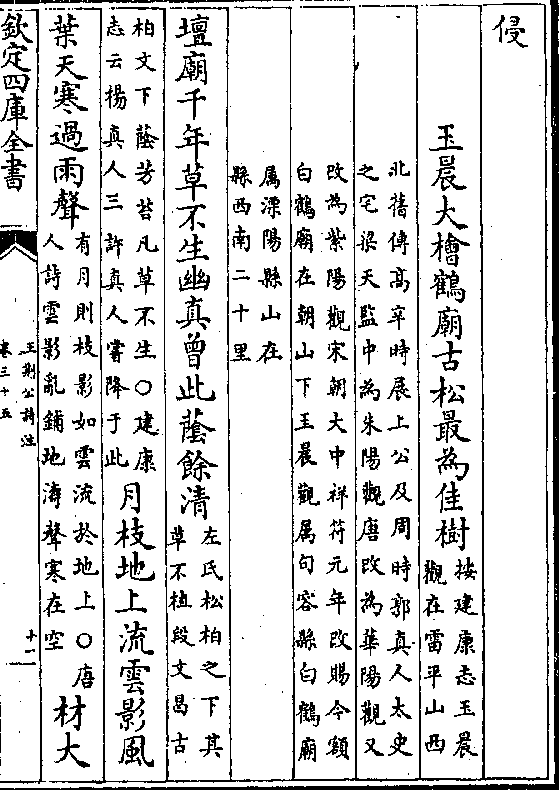 侵
玉晨大檜鶴廟古松最為佳樹
按建康志玉晨
觀在雷平山西
北舊傳高辛時展上公及周時郭真人太史
之宅梁天監中為朱陽觀唐改為華陽觀又
改為紫陽觀宋朝大中祥符元年改賜今額
白鶴廟在朝山下玉晨觀属句容縣白鶴廟
属溧陽縣山在
縣西南二十里
壇廟千年草不生幽真曾此蔭餘清
左氏松柏之下其
草不植段文昌古
柏文下蔭芳苔凡草不生○建康
志云楊真人三許真人嘗降于此
月枝地上流雲影風
葉天寒過雨聲
有月則枝影如雲流於地上○唐
人詩雲影亂鋪地濤聲寒在空
材大
欽定四庫全書
王荆公詩注
卷三十五
十一